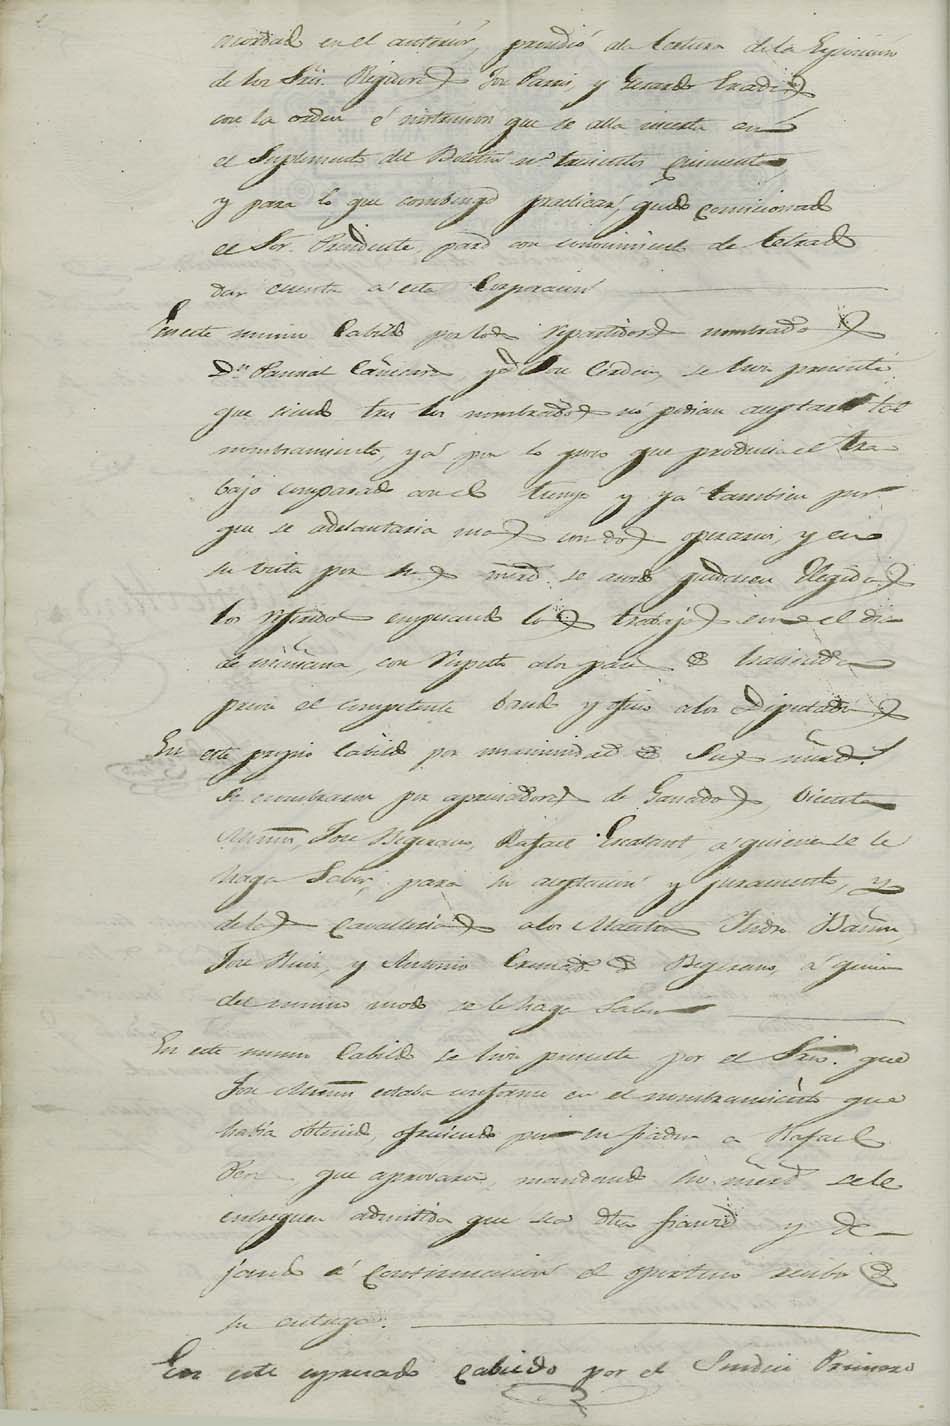 acordado en el anterior, precedió a la lectura de la Esposicion
de los Sres. Regidores José Parra, y Gerardo
con la orden é instruccion que se alla inserta en
el Suplemento del Boletin nº trecientos cincuenta,
y para lo que combenga practicar, quedó comicionado
el Sor. Presidente, para con conocimiento de letrado
dar cuenta á esta Corporacion
En este mismo Cabildo por los repartidores nombrados
Dn. Pascual y José se hizo presente
que siendo tres los nombrados no podian aceptar tal
nombramiento, yá por lo poco que producia el tra
bajo comparado con el tiempo y yá tambien por
que se adelantaria mas con dos operarios, y en
su vista por sus mrds. se acordó quedasen elegidos
los referidos empezando los trabajos en el dia
de mañana, con respeto a los pares de
previo el competente bando y oficio a los Diputados
En este propio Cabildo por unanimidad de sus mrds.
se nombraron por apreciadores de Ganados, Vicente
José Begerano, Rafael Escalant, a quienes se le
haga Saber, para su aceptacion y juramento, y
de las Cavallerias a los Maestros Isidro
José Ruiz, y Antonio de Begerano, á quien
del mismo modo se le haga Saber
En este mismo Cabildo se hizo presente por el Srio. que
José estaba conforme en el nombramiento que
habia obtenido, ofreciendo por su fiador a Rafael
que aprovaron, mandando sus mrds. se le
entreguen admitida que sea dha. fianza y de
jando á Continuacion el oportuno recibo de
su entrega.
En este espresado Cabildo por el Sindico Primero